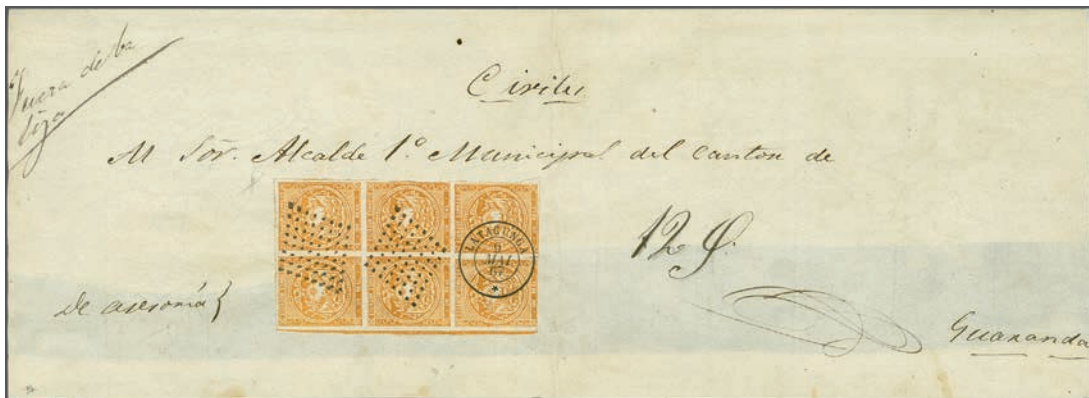 Fuera de ba
liza
Civiles
Al Sor. Alcalde 1º Municipal del Canton de
LATACUNGA
12 
de asesoría}
Guaranda